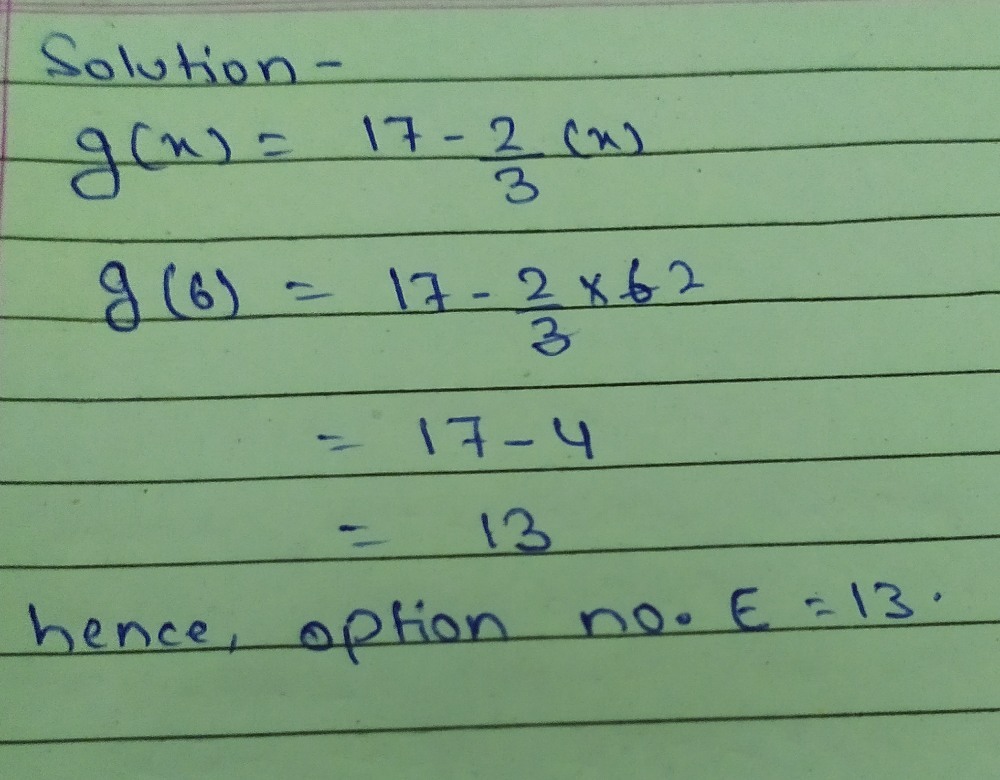 Solution -
g(x) = 17 - 2/3 (x)
g(6) = 17 - 2/3 × 6 2
= 17 - 4
= 13
hence, option no. E = 13.